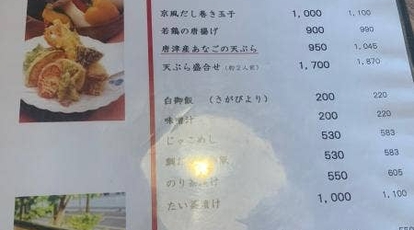 京風だし巻き玉子 1,000 1,100
若鶏の唐揚げ 900 990
唐津産あなごの天ぷら 950 1,045
天ぷら盛合せ(約2人前) 1,700 1,870
白御飯 (さがびより) 200 220
味噌汁 200 220
じゃこめし 530 583
530 583
のり茶漬け 550 605
たい茶漬け 1,000 1,100